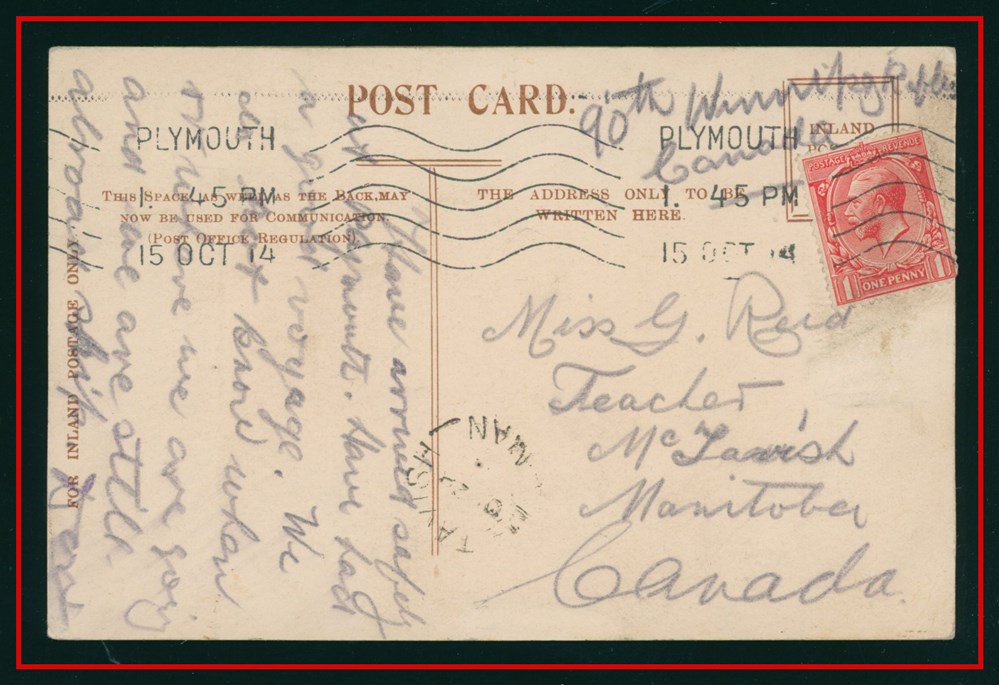 POST CARD.
90th Winnipeg Rifles
Canada
PLYMOUTH
1. 45 PM
15 OCT 14
PLYMOUTH
1. 45 PM
15 OCT 14
INLAND
POSTAGE REVENUE
1 ONE PENNY 1
THIS SPACE, AS WELL AS THE BACK, MAY
NOW BE USED FOR COMMUNICATION.
(POST OFFICE REGULATION).
THE ADDRESS ONLY TO BE
WRITTEN HERE.
FOR INLAND POSTAGE ONLY
Have arrived safely
at Plymouth. Have had
a great voyage. We
do not know when
or where we are going
and we are still
aboard ship
Miss G. Reid
Teacher
McTavish
Manitoba
Canada.
TAVISH
MAN